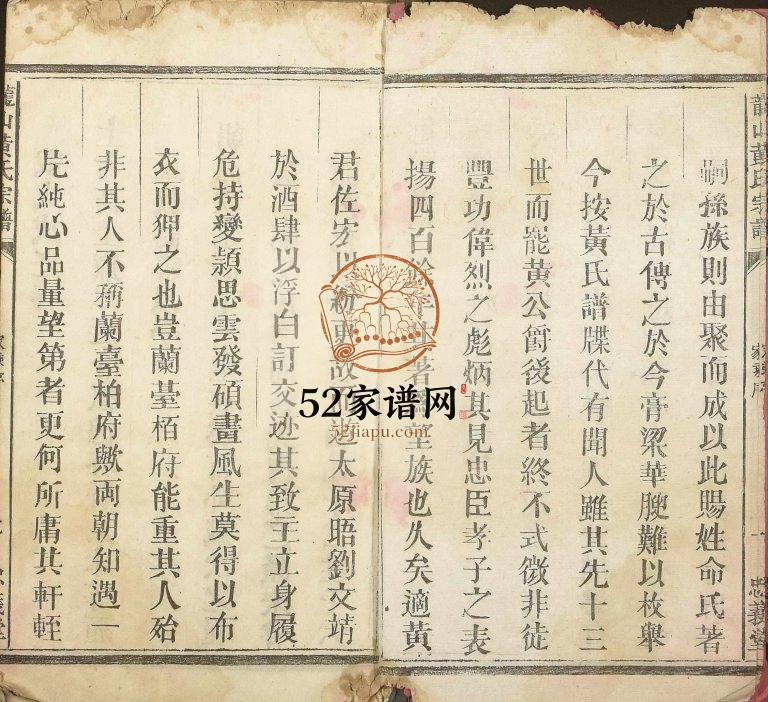 龍山黃氏宗譜
家乘序
一
忠義堂
嗣孫族則由聚而成以此賜姓命氏著
之於古傳之於今膏粱華腴難以枚舉
今按黃氏譜牒代有聞人雖其先十三
世而罷黃公爵後起者終不式微非徒
豐功偉烈之彪炳其見忠臣孝子之表
揚四百餘年其著望族也久矣適黃
君佐宏以紛典故而遊太原晤劉文靖
於酒肆以浮白訂交迹其致主立身履
危持變頴思雲發碩畫風生莫得以布
衣而狎之也豈蘭臺栢府能重其人殆
非其人不稱蘭臺柏府歟両朝知遇一
片純心品量望第者更何所庸其軒輊
龍山黃氏宗譜
52家谱网
52jiapu.com